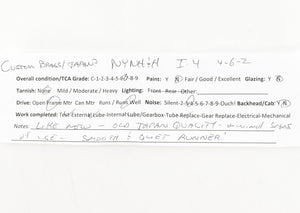 CUSTOM BRASS/JAPAN NYNH&H I-4 4-6-2
Overall condition/TCA Grade: C-1-2-3-4-5-6-7-8-9 Paint: Y N Fair / Good / Excellent Glazing: Y N
Tarnish: None / Mild / Moderate / Heavy Lighting: Front Rear Other:
Drive: Open Frame Mtr Can Mtr Runs / Runs Well Noise: Silent-2-3-4-5-6-7-8-9-Ouch! Backhead/Cab: Y N
Work completed: Test External Lube-Internal Lube/Gearbox-Tube Replace-Gear Replace-Electrical-Mechanical
Notes: LIKE NEW - OLD JAPAN QUALITY - MINOR SIGNS
OF USE - SMOOTH & QUIET RUNNER!